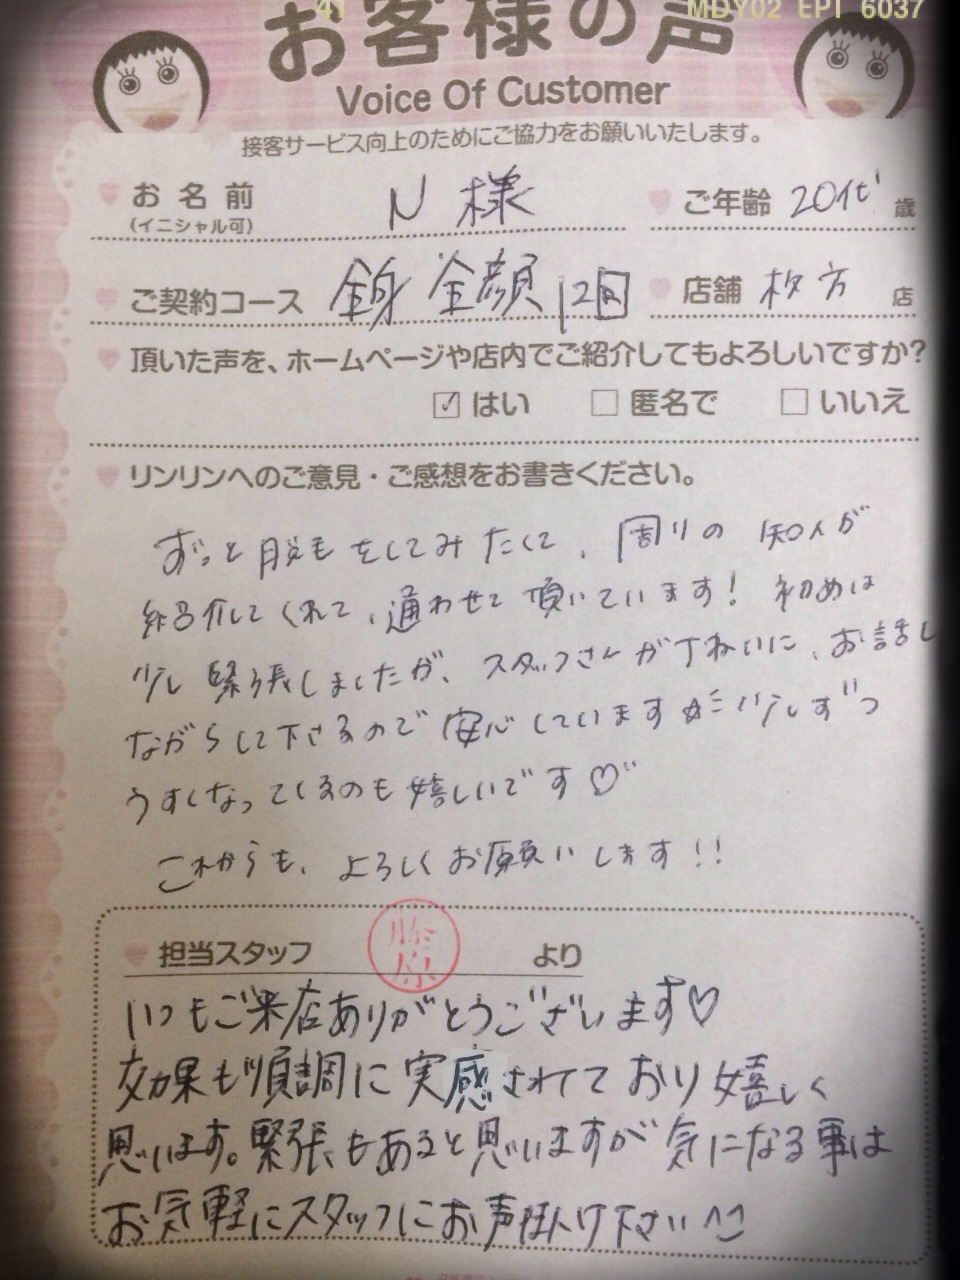 41 MDY02 EPT 6037
お客様の声
Voice Of Customer
接客サービス向上のためにご協力をお願いいたします。
お名前 N 様 ご年齢 20代 歳
(イニシャル可)
ご契約コース 全身 全顔 12回 店舗 枚方 店
頂いた声を、ホームページや店内でご紹介してもよろしいですか?
☑ はい □ 匿名で □ いいえ
リンリンへのご意見・ご感想をお書きください。
ずっと脱毛をしてみたくて、周りの知人が
紹介してくれて、通わせて頂いています! 初めは
少し緊張しましたが、スタッフさんが丁ねいに、お話し
ながらして下さるので安心しています 少しずつ
うすくなってくるのも嬉しいです♡
これからも、よろしくお願いします!!
担当スタッフ 藤原 より
いつもご来店ありがとうございます♡
効果も順調に実感されており嬉しく
思います。緊張もあると思いますが気になる事は
お気軽にスタッフにお声掛け下さい^^